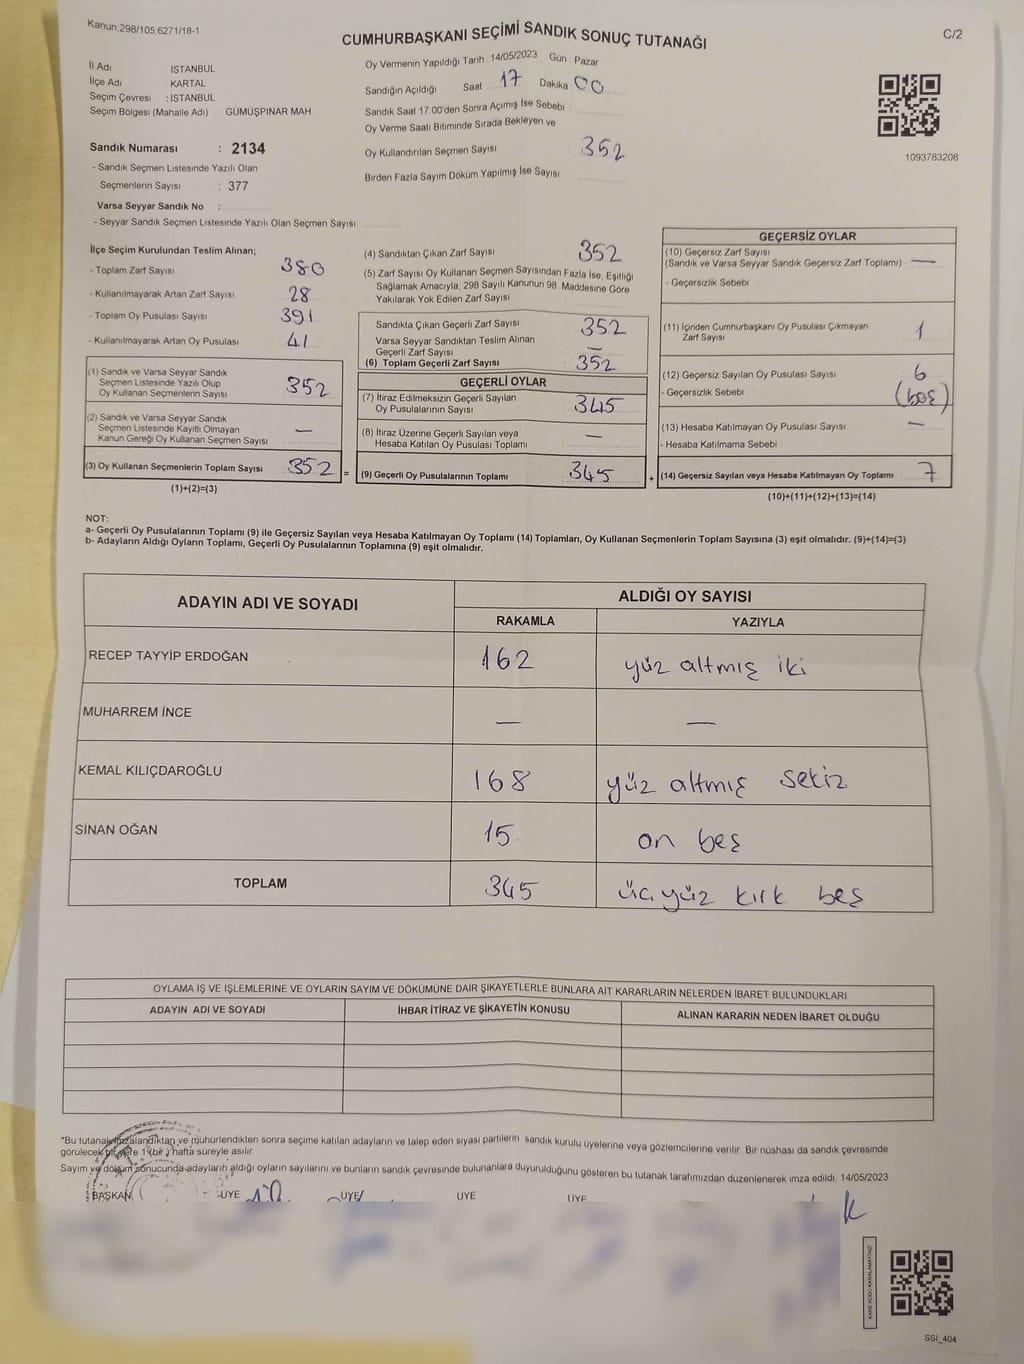 Kanun,298/105,6271/18-1
CUMHURBAŞKANI SEÇİMİ SANDIK SONUÇ TUTANAĞI
C/2
İl Adı : İSTANBUL
İlçe Adı : KARTAL
Seçim Çevresi : İSTANBUL
Seçim Bölgesi (Mahalle Adı) : GÜMÜŞPINAR MAH.
Sandık Numarası : 2134
- Sandık Seçmen Listesinde Yazılı Olan
Seçmenlerin Sayısı : 377
Varsa Seyyar Sandık No :
- Seyyar Sandık Seçmen Listesinde Yazılı Olan Seçmen Sayısı
Oy Vermenin Yapıldığı Tarih : 14/05/2023 Gün : Pazar
Sandığın Açıldığı Saat 17 Dakika 00
Sandık Saat 17:00'den Sonra Açımış İse Sebebi
Oy Verme Saati Bitiminde Sırada Bekleyen ve
Oy Kullandırılan Seçmen Sayısı 352
Birden Fazla Sayım Döküm Yapılmış İse Sayısı
1093763208
İlçe Seçim Kurulundan Teslim Alınan;
- Toplam Zarf Sayısı 380
- Kullanılmayarak Artan Zarf Sayısı 28
- Toplam Oy Pusulası Sayısı 391
- Kullanılmayarak Artan Oy Pusulası 41
(1) Sandık ve Varsa Seyyar Sandık
Seçmen Listesinde Yazılı Olup
Oy Kullanan Seçmenlerin Sayısı 352
(2) Sandık ve Varsa Seyyar Sandık
Seçmen Listesinde Kayıtlı Olmayan
Kanun Gereği Oy Kullanan Seçmen Sayısı —
(3) Oy Kullanan Seçmenlerin Toplam Sayısı 352 =
(1)+(2)=(3)
(4) Sandıktan Çıkan Zarf Sayısı 352
(5) Zarf Sayısı Oy Kullanan Seçmen Sayısından Fazla İse, Eşitliği
Sağlamak Amacıyla, 298 Sayılı Kanunun 98. Maddesine Göre
Yakılarak Yok Edilen Zarf Sayısı
Sandıkta Çıkan Geçerli Zarf Sayısı 352
Varsa Seyyar Sandıktan Teslim Alınan
Geçerli Zarf Sayısı —
(6) Toplam Geçerli Zarf Sayısı 352
GEÇERLİ OYLAR
(7) İtiraz Edilmeksizin Geçerli Sayılan
Oy Pusulalarının Sayısı 345
(8) İtiraz Üzerine Geçerli Sayılan veya
Hesaba Katılan Oy Pusulası Toplamı —
(9) Geçerli Oy Pusulalarının Toplamı 345 +
GEÇERSİZ OYLAR
(10) Geçersiz Zarf Sayısı
(Sandık ve Varsa Seyyar Sandık Geçersiz Zarf Toplamı) —
- Geçersizlik Sebebi
(11) İçinden Cumhurbaşkanı Oy Pusulası Çıkmayan
Zarf Sayısı 1
(12) Geçersiz Sayılan Oy Pusulası Sayısı 6
- Geçersizlik Sebebi (boş)
(13) Hesaba Katılmayan Oy Pusulası Sayısı —
- Hesaba Katılmama Sebebi
(14) Geçersiz Sayılan veya Hesaba Katılmayan Oy Toplamı 7
(10)+(11)+(12)+(13)=(14)
NOT:
a- Geçerli Oy Pusulalarının Toplamı (9) ile Geçersiz Sayılan veya Hesaba Katılmayan Oy Toplamı (14) Toplamları, Oy Kullanan Seçmenlerin Toplam Sayısına (3) eşit olmalıdır. (9)+(14)=(3)
b- Adayların Aldığı Oyların Toplamı, Geçerli Oy Pusulalarının Toplamına (9) eşit olmalıdır.
ADAYIN ADI VE SOYADI ALDIĞI OY SAYISI
RAKAMLA YAZIYLA
RECEP TAYYİP ERDOĞAN 162 yüz altmış iki
MUHARREM İNCE — —
KEMAL KILIÇDAROĞLU 168 yüz altmış sekiz
SİNAN OĞAN 15 on beş
TOPLAM 345 üç yüz kırk beş
OYLAMA İŞ VE İŞLEMLERİNE VE OYLARIN SAYIM VE DÖKÜMÜNE DAİR ŞİKAYETLERLE BUNLARA AİT KARARLARIN NELERDEN İBARET BULUNDUKLARI
ADAYIN ADI VE SOYADI İHBAR İTİRAZ VE ŞİKAYETİN KONUSU ALINAN KARARIN NEDEN İBARET OLDUĞU
*Bu tutanak imzalandıktan ve mühürlendikten sonra seçime katılan adayların ve talep eden siyasi partilerin sandık kurulu üyelerine veya gözlemcilerine verilir. Bir nüshası da sandık çevresinde
görülecek bir yere 1 (bir) hafta süreyle asılır.
Sayım ve döküm sonucunda adayların aldığı oyların sayılarını ve bunların sandık çevresinde bulunanlara duyurulduğunu gösteren bu tutanak tarafımızdan düzenlenerek imza edildi. 14/05/2023
BAŞKAN ÜYE ÜYE ÜYE ÜYE
KARE KODU KARALAMAYINIZ!
SSI_404